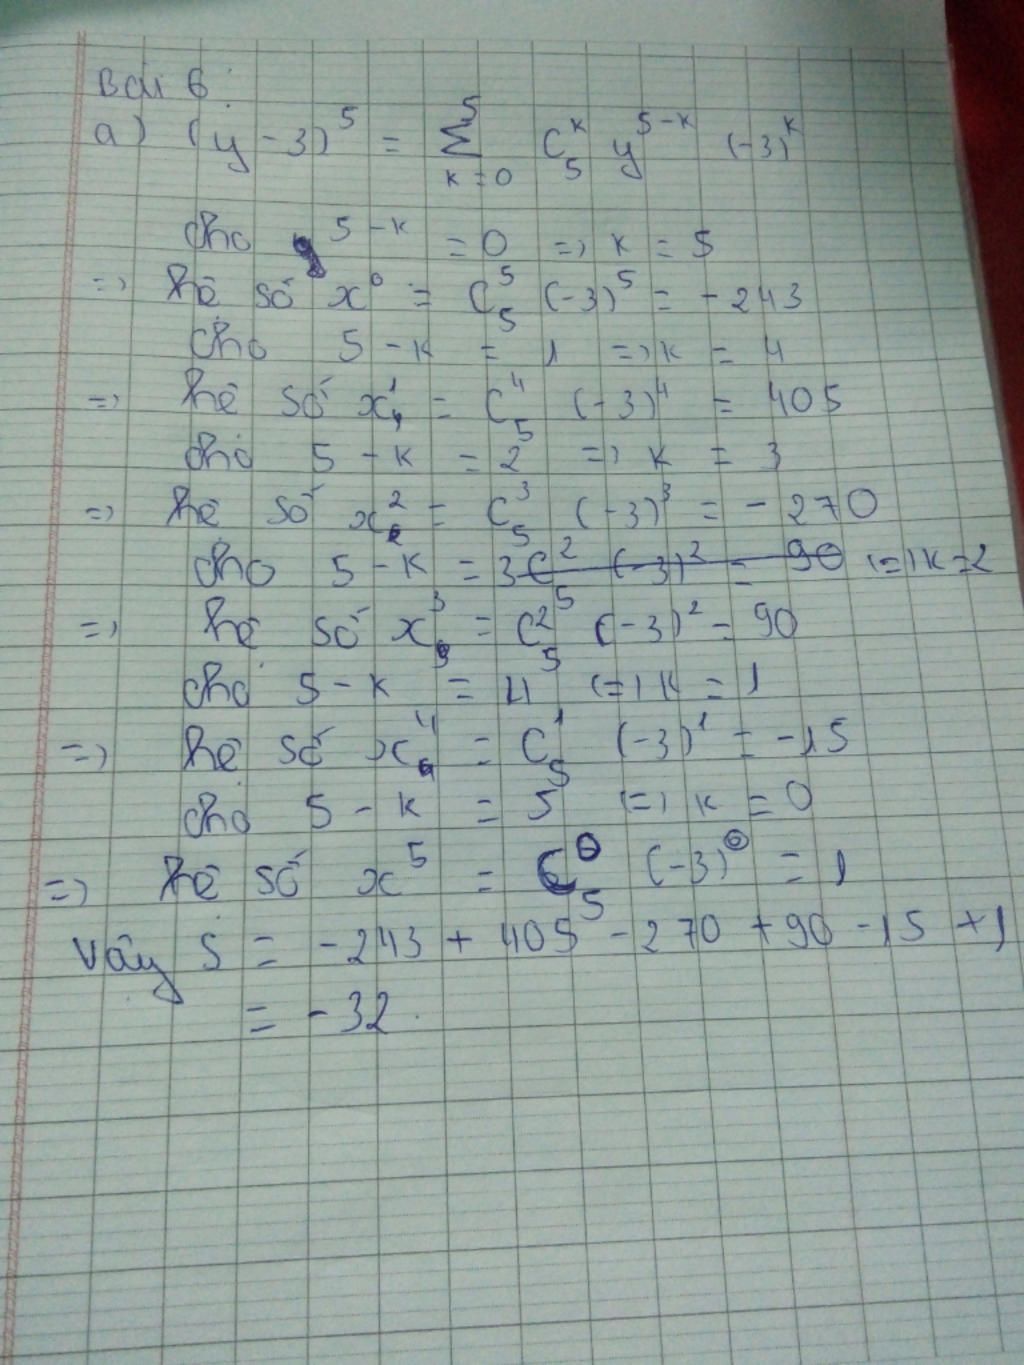 Bài 6:
a) (y - 3)⁵ = Σ⁵ₖ₌₀ C₅ᵏ y⁵⁻ᵏ (-3)ᵏ
cho 5 - k = 0 => k = 5
=> hệ số x⁰ = C₅⁵ (-3)⁵ = - 243
Cho 5 - k = 1 => k = 4
=> hệ số x¹ = C₅⁴ (-3)⁴ = 405
cho 5 - k = 2 => k = 3
=> hệ số x² = C₅³ (-3)³ = - 270
cho 5 - k = 3 (=) k = 2
=> hệ số x³ = C₅² (-3)² = 90
cho 5 - k = 4 (=) k = 1
=> hệ số x⁴ = C₅¹ (-3)¹ = -15
cho 5 - k = 5 (=) k = 0
=> hệ số x⁵ = C₅⁰ (-3)⁰ = 1
Vậy S = - 243 + 405 - 270 + 90 - 15 + 1
= - 32.